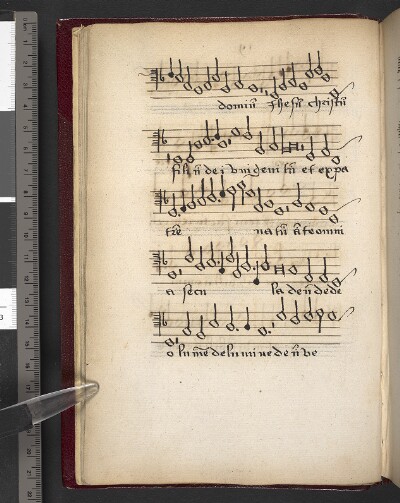 dominū Jhesū christū
filiū dei vnigenitū et ex pa
tre natū āte omni
a secu la deū de de
o lumē de lumine deū ve